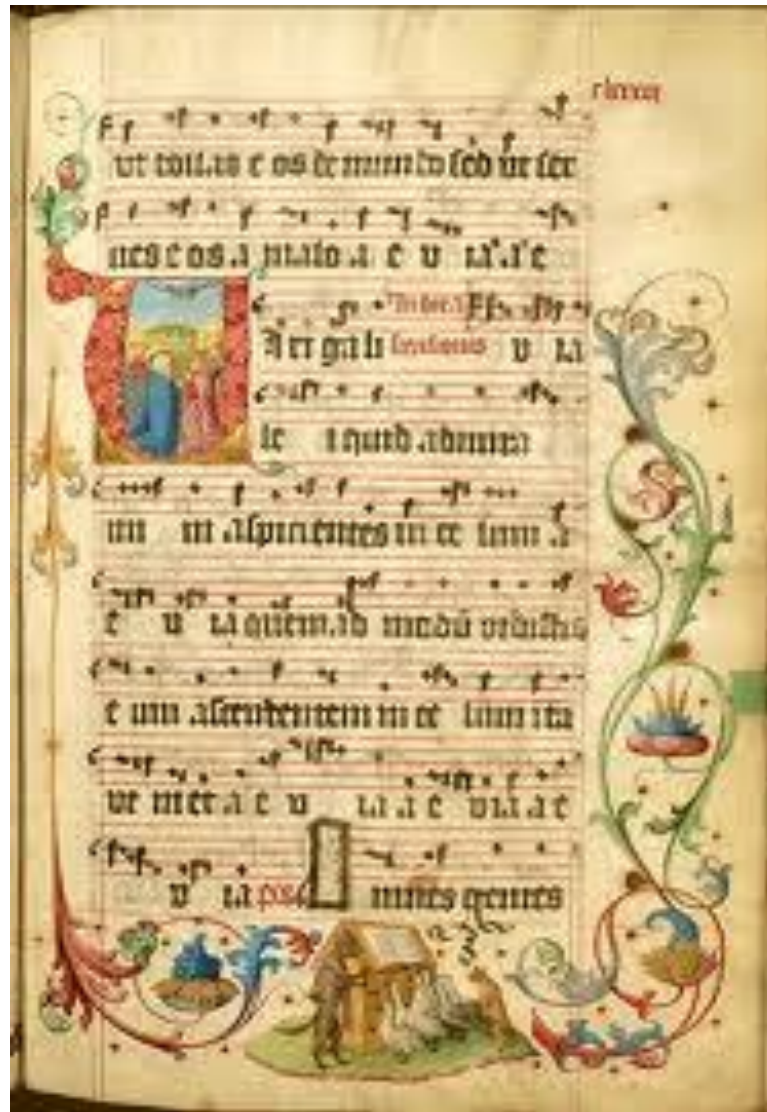 ut tollas e os de mundo sed ut ser
ues e os a malo a e u ia a e
Viri gali u ia
le i quid admira
mi ni aspicientes in ce lum a
e u ia quemad modū vidistis
e um ascendentem in ce lum ita
ve niet a e u ia a e u ia a e
u ia ps mnes gentes